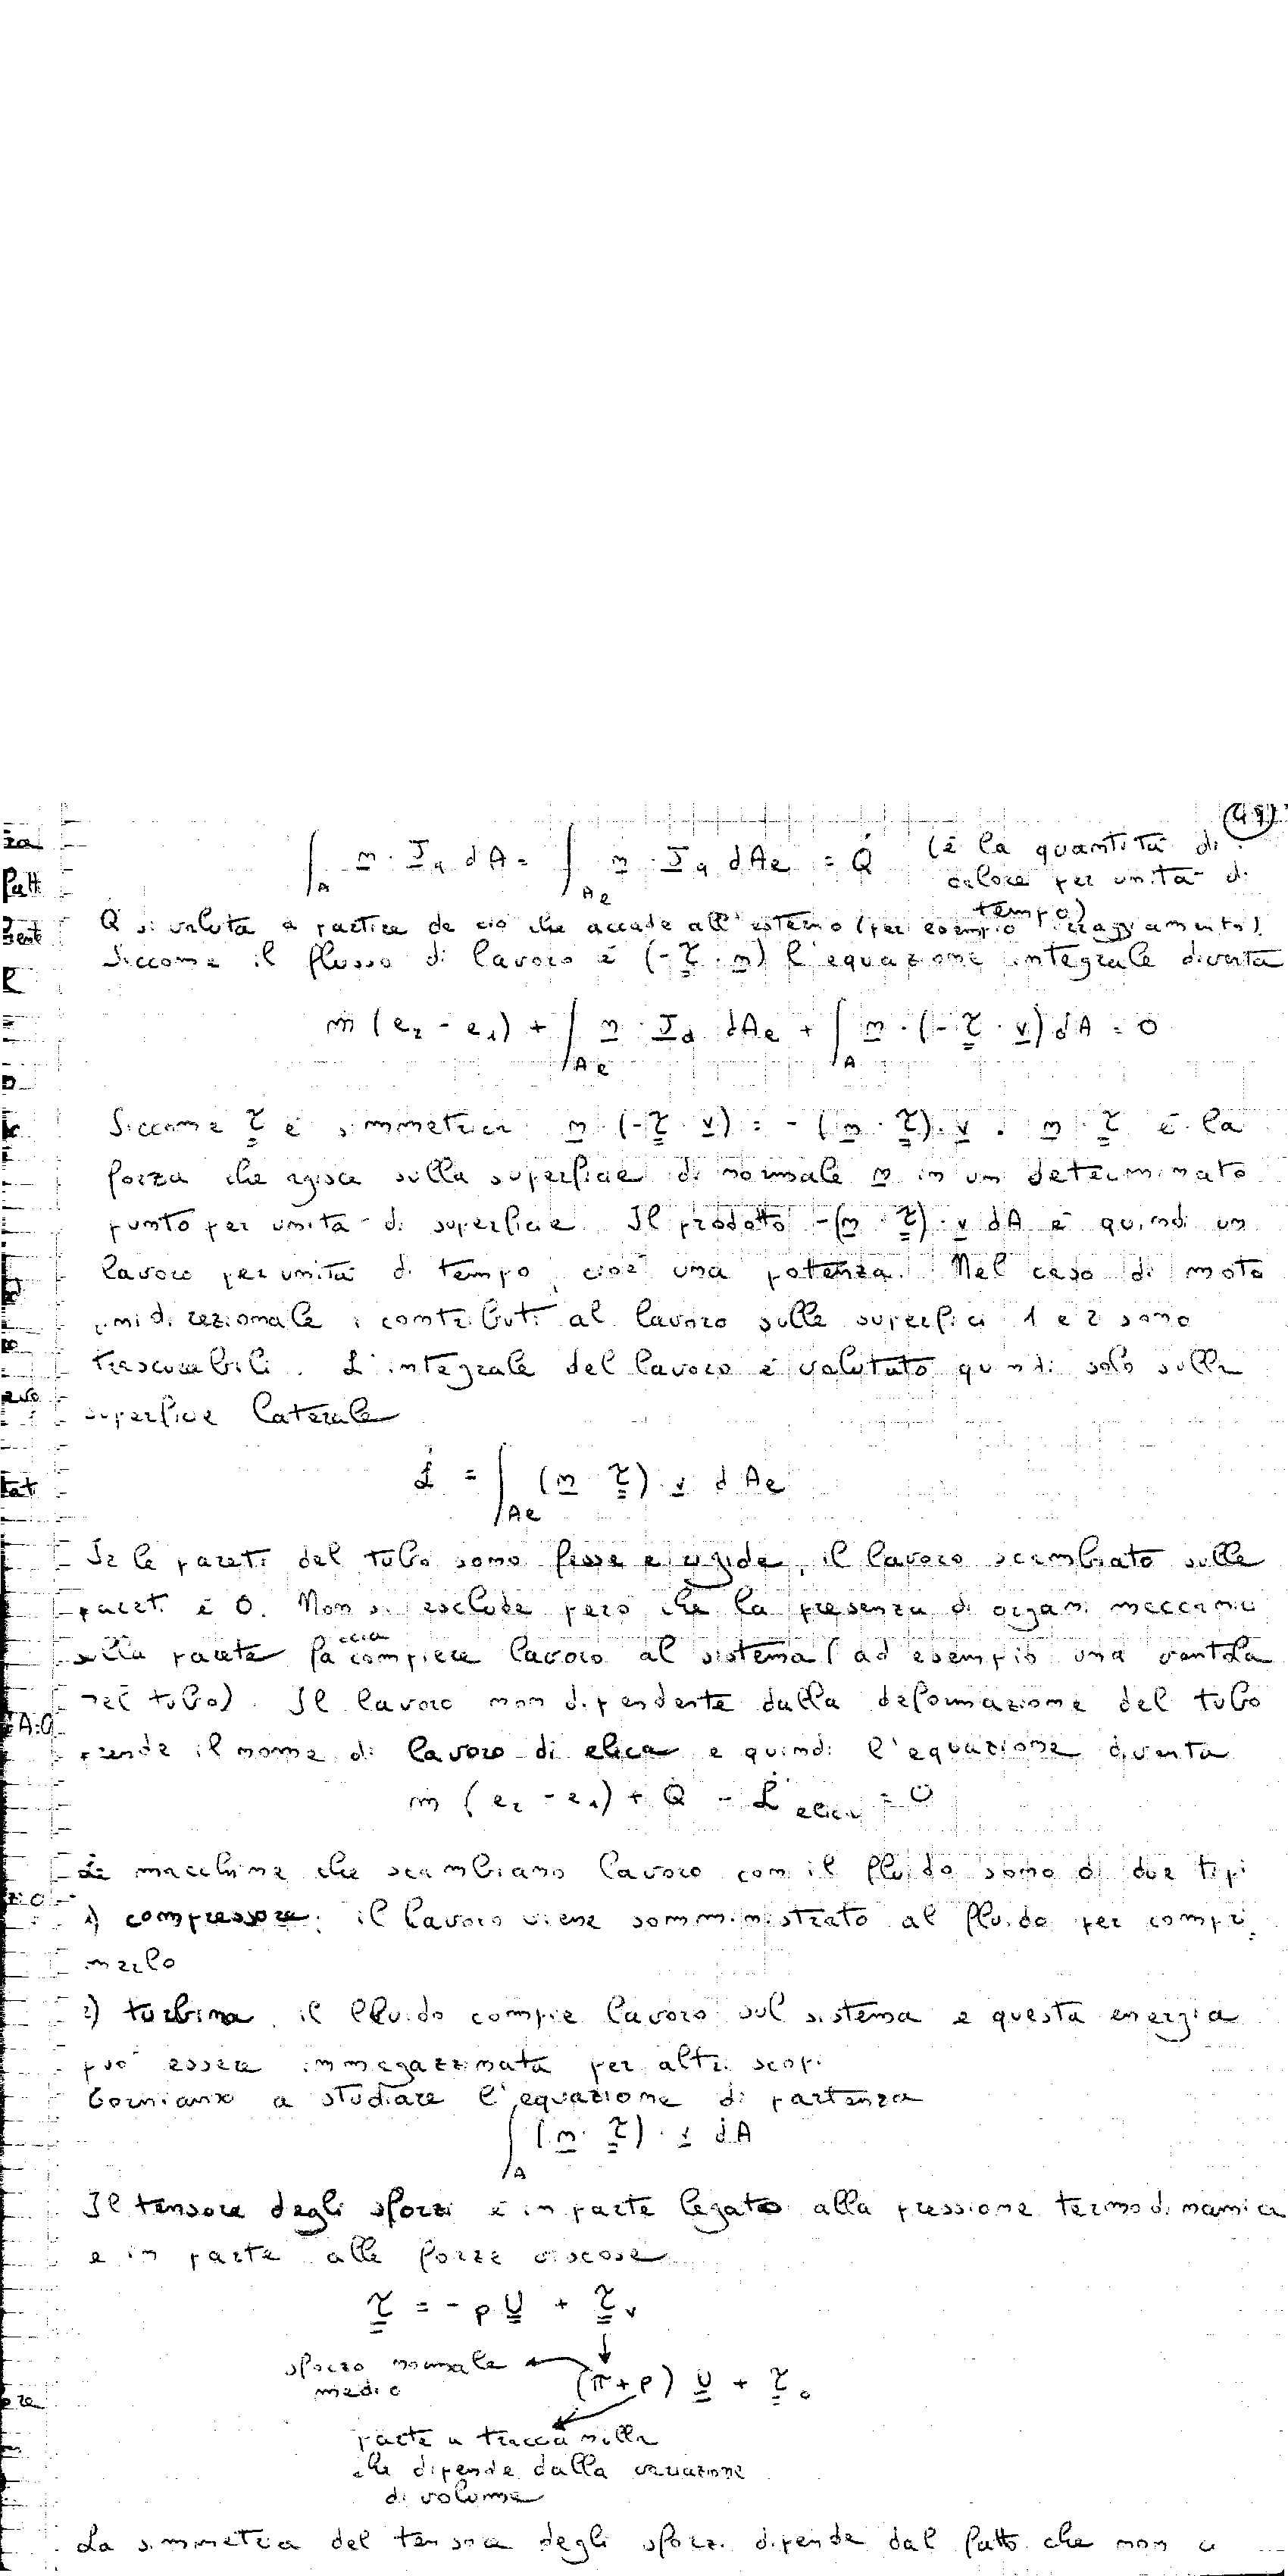 (49)
∫_A n · J_q dA = ∫_Ae n · J_q dAe = Q̇ (è la quantità di
calore per unità di
tempo)
Q si valuta a partire da ciò che accade all'esterno (per esempio irraggiamento).
Siccome il flusso di lavoro è (-τ · n) l'equazione integrale diventa
ṁ (e₂ - e₁) + ∫_Ae n · J_q dAe + ∫_A n · (-τ · v) dA = 0
Siccome τ è simmetrica n · (-τ · v) = -(n · τ) · v . n · τ è la
forza che agisce sulla superficie di normale n in un determinato
punto per unità di superficie. Il prodotto -(n · τ) · v dA è quindi un
lavoro per unità di tempo, cioè una potenza. Nel caso di moto
unidirezionale i contributi al lavoro sulle superfici 1 e 2 sono
trascurabili. L'integrale del lavoro è valutato quindi solo sulla
superficie laterale
L̇ = ∫_Ae (n · τ) · v dAe
Se le pareti del tubo sono fisse e rigide, il lavoro scambiato sulle
pareti è 0. Non si esclude però che la presenza di organi meccanici
sulla parete faccia compiere lavoro al sistema (ad esempio una ventola
nel tubo). Il lavoro non dipendente dalla deformazione del tubo
prende il nome di lavoro di elica e quindi l'equazione diventa
ṁ (e₂ - e₁) + Q̇ - L̇ elica = 0
Le macchine che scambiano lavoro con il fluido sono di due tipi
1) compressore: il lavoro viene somministrato al fluido per compri
merlo
2) turbina il fluido compie lavoro sul sistema e questa energia
può essere immagazzinata per altri scopi
Torniamo a studiare l'equazione di partenza
∫_A (n · τ) · v dA
Il tensore degli sforzi è in parte legato alla pressione termodinamica
e in parte alle forze viscose
τ = - p U + τ_v
sforzo normale
medio
(π + p) U + τ₀
parte a traccia nulla
che dipende dalla variazione
di volume
La simmetria del tensore degli sforzi dipende dal fatto che non ci